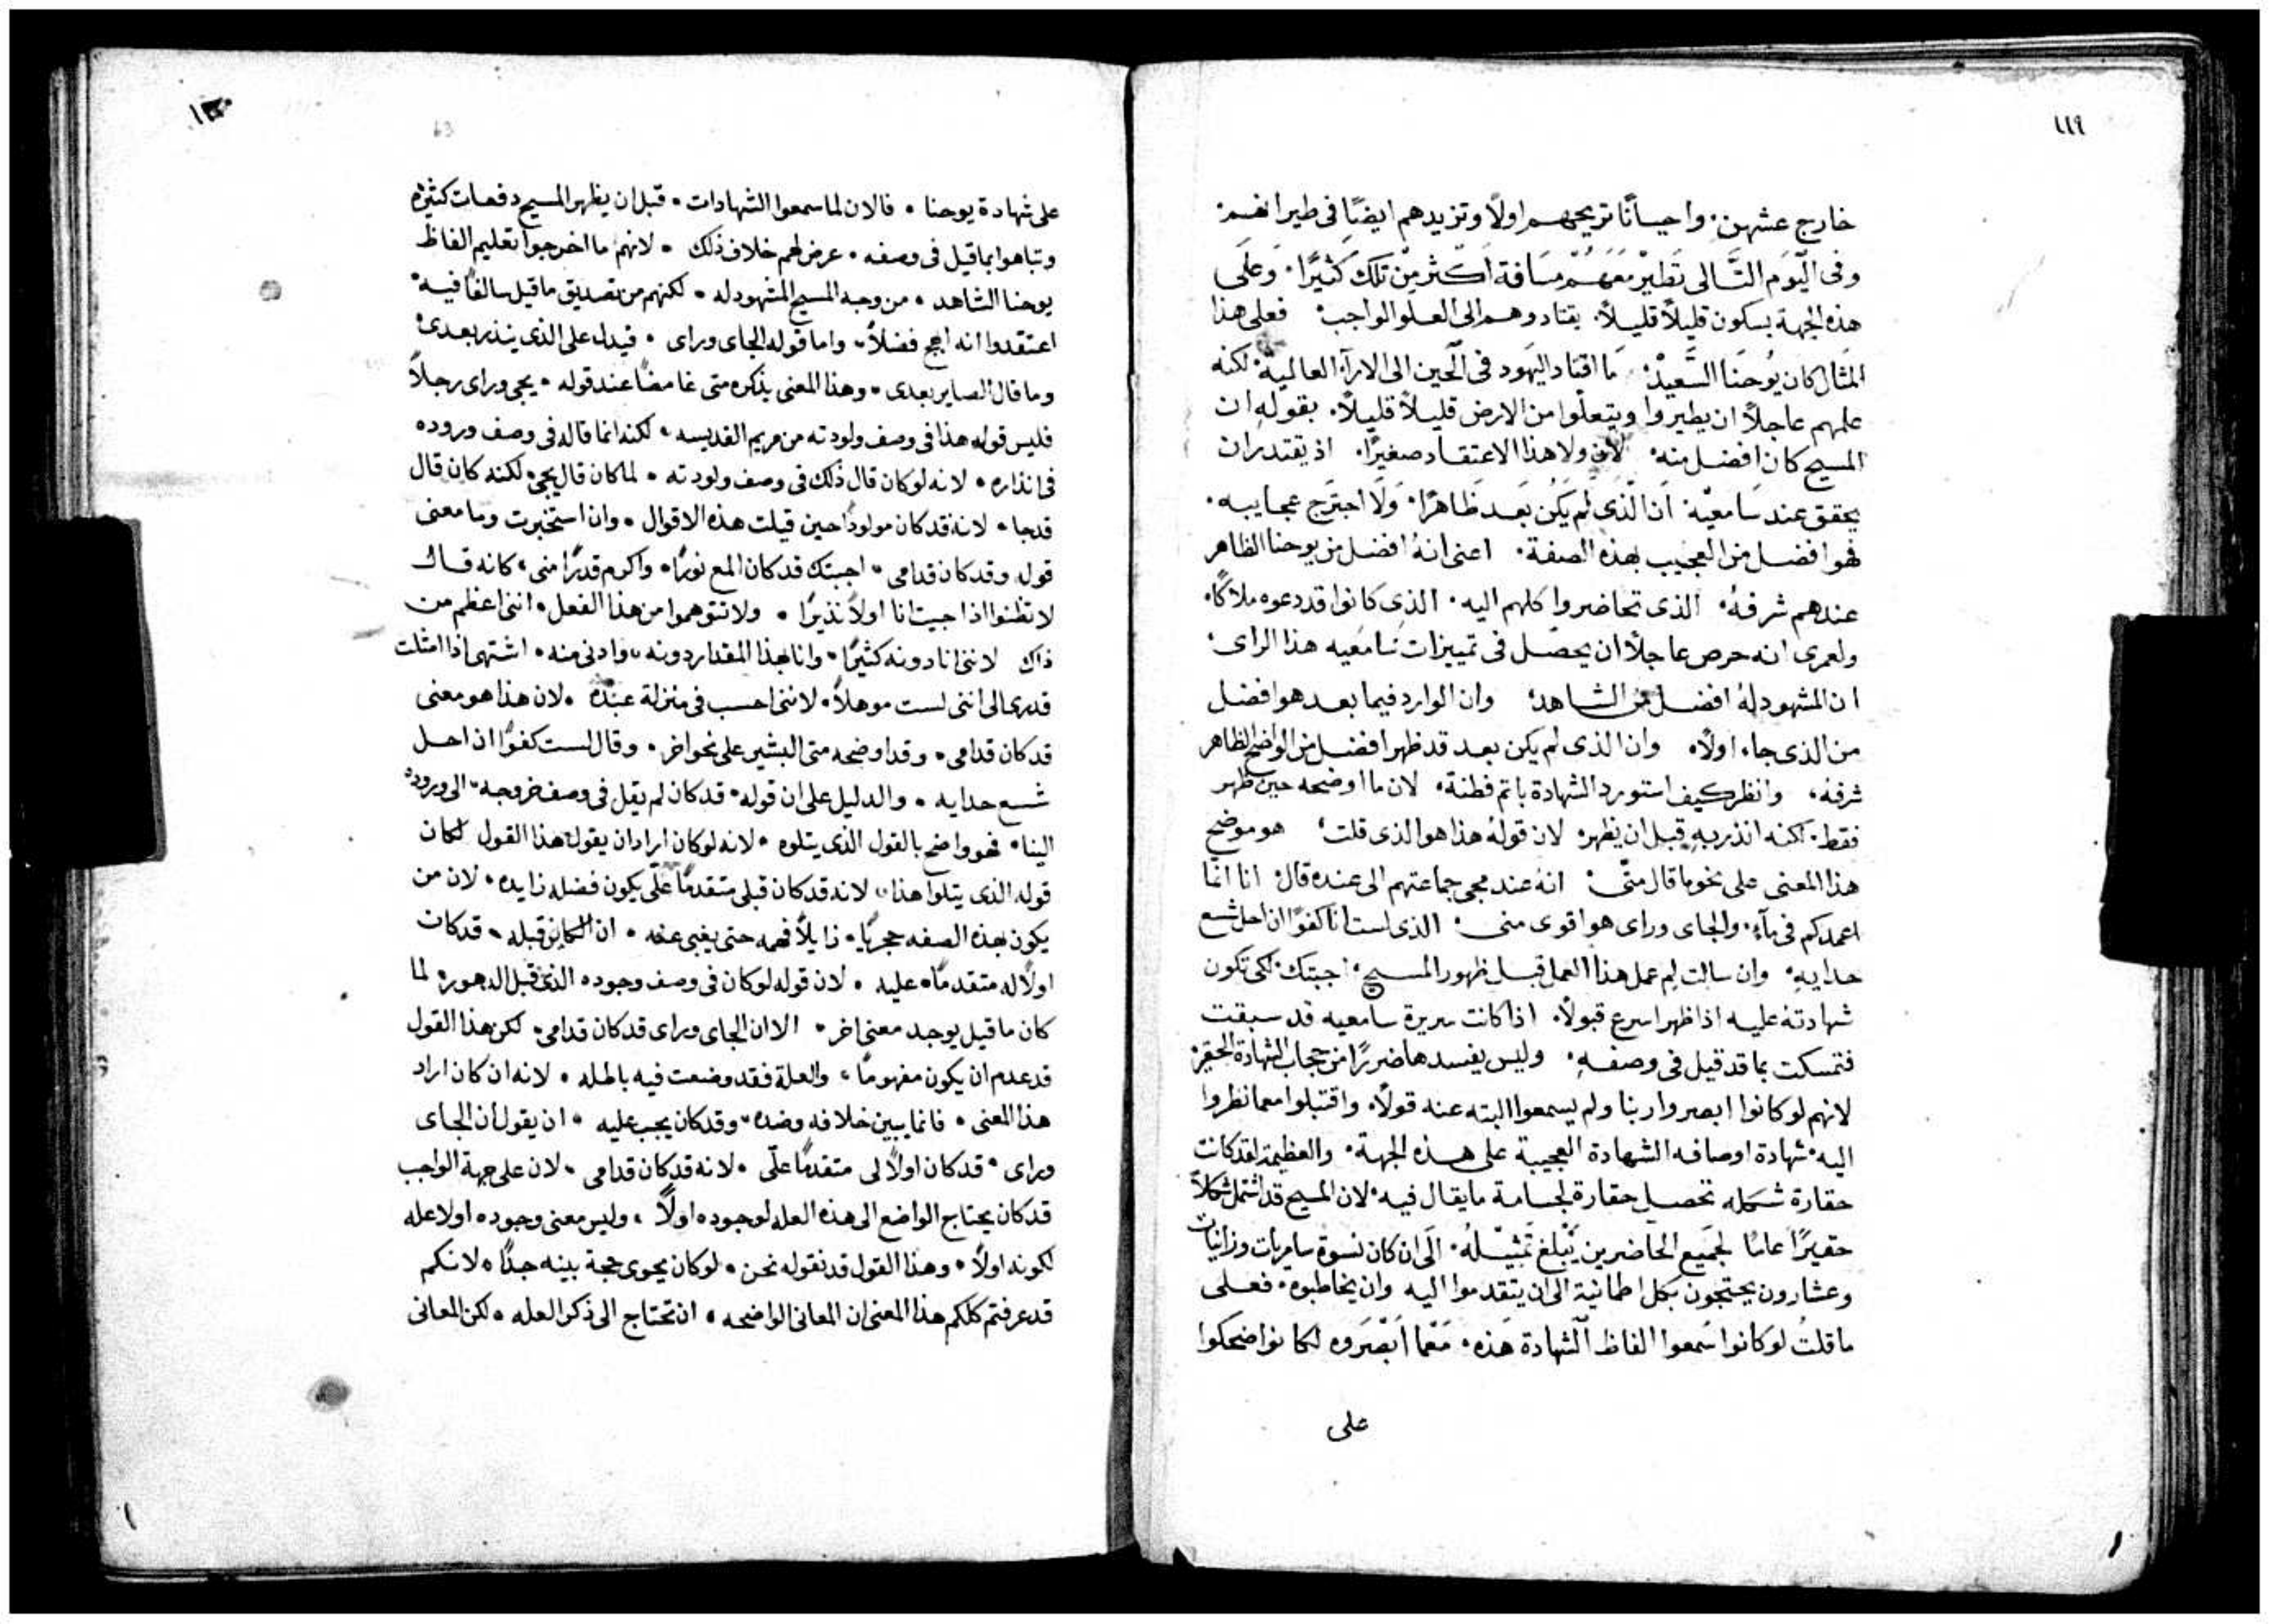 ١١٩
خارج عشهن. واحيانًا تريحهم اولًا وتزيدهم ايضًا فى طيرانهم.
وفى اليَوم التَّالى تَطيرْ مَعَهُمْ مسَافة اَكثر مِنْ تلكَ كَثيرًا. وَعَلَى
هذه الجهة بسكون قليلًا قليلًا. يقتادوهم الى العلو الواجب. فعلى هذا
المَثال كان يُوحَنا السَّعِيدْ. مَا اقتاد اليَهود فى الَحين الى الارآء العالمية. لكنه
علمهم عاجلًا ان يطيروا ويتعلّوا من الارض قليلًا قليلًا. بقولهِ ان
المسيح كان افضل منه. لان ولا هذا الاعتقاد صغيرًا. اذ يقتدر ان
يحقق عند سَامعيْه. اَن الَّذى لَم يَكُن بَعد ظَاهرًا. وَلَا اجتَرح عجايبه.
فهو افضل من العجيب بهذه الصفة. اعنى انهُ افضل من يوحنا الظاهر
عندهم شرفهُ. الذى تحاضروا كلهم اليه. الذى كانوا قد دعوه ملاكًا.
ولعمرى انه حرص عاجلًا ان يحصّل فى تمييزات سَامعيه هذا الراى.
ان المشهود لهُ افضل من الشاهد. وان الوارد فيما بعد هو افضل
من الذى جاء اولًا. وان الذى لم يكن بعد قد ظهر افضل من الواضح الظاهر
شرفه. وانظر كيف استورد الشهادة باتم فطنة. لان ما اوضحه حين ظهر
فقط. لكنه انذر بهِ قبل ان يظهر. لان قولهُ هذا هو الذى قلت. هو موضح
هذا المعنى على نحو ما قال متّى. انهُ عند مجى جماعتهم الى عنده قال. انا انما
اعمدكم فى مآء. والجاى وراى هو اقوى منى. الذى لست انا كفوًا ان احل شسع
حدايهِ. وان سالت لِم عمل هذا العمل قبل ظهور المسيح. اجبتك. لكى تكون
شهادتهُ عليه اذا ظهر اسرع قبولًا. اذا كانت سريرة سامعيه قد سبقت
فتمسكت بما قد قيل فى وصفهِ. وليس يفسدها ضررًا من حجاب الشهادة الحقيرة
لانهم لو كانوا ابصروا ربنا ولم يسمعوا البته عنه قولًا. واقتبلوا معما نظروا
اليه. شهادة اوصافه الشهادة العجيبة على هذه الجهة. والعظيمة لقد كانت
حقارة شكله تحصل حقارة لجسامة ما يقال فيه. لان المسيح قد اشتمل شكلًا
حقيرًا عاميًا لجَميع الحاضرين يَبْلغ تَمثيْلهُ. الَى ان كان نسوة سامريات وزانيات
وعشارون يحتجون بكل اطمانية الى ان يتقدموا اليه وان يخاطبوه. فعلى
ما قلتُ لو كانوا سَمعوا الفاظ الَشهادة هَذه. مَعْما اَبْصَروه لكانوا ضحكوا
على
١٢٠
63
على شهادة يوحنا. فالان لما سمعوا الشهادات. قبل ان يظهر المسيح دفعات كثيره
وتباهوا بما قيل فى وصفه. عرض لهم خلاف ذلك. لانهم ما اخرجوا تعليم الفاظ
يوحنا الشاهد. من وجه المسيح المشهود له. لكنهم من تصديق ما قيل سالفًا فيه.
اعتقدوا انه ارجح فضلًا. واما قوله الجاى وراى. فيدل على الذى ينذر بعدى.
وما قال الصاير بعدى. وهذا المعنى يذكره متى غامضًا عند قوله. يجى وراى رجلًا
فليس قوله هذا فى وصف ولودته من مريم القديسه. لكنه انما قاله فى وصف وروده
فى انذاره. لانه لو كان قال ذلك فى وصف ولودته. لما كان قال يجى. لكنه كان قال
قد جا. لانه قد كان مولودًا حين قيلت هذه الاقوال. وان استخبرت وما معنى
قوله وقد كان قدامى. اجبتك قد كان المع نورًا. واكرم قدرًا منى. كانه قال
لا تظنوا اذا جيت انا اولًا نذيرًا. ولا تتوهموا من هذا الفعل. اننى اعظم من
ذاك لاننى انا دونه كثيرًا. وانا بهذا المقدار دونه. وادنى منه. اشتهى اذا امثلت
قدرى الى اننى لست موهلًا. لاننى احسب فى منزلة عبده. لان هذا هو معنى
قد كان قدامى. وقد اوضحه متى البشير على نحو اخر. وقال لست كفوًا ان احل
شسع حدايه. والدليل على ان قوله. قد كان لم يقل فى وصف خروجه. الى وروده
الينا. فهو واضح بالقول الذى يتلوه. لانه لو كان اراد ان يقول هذا القول لكان
قوله الذى يتلوا هذا. لانه قد كان قبلى متقدمًا علّى يكون فضله زايده. لان من
يكون بهذه الصفه حجريًا. زايلًا فهمه حتى يغبى عنه. ان الكاين قبله. قد كان
اولًا له متقدمًا عليه. لان قوله لو كان فى وصف وجوده الذى قبل الدهور. لما
كان ما قيل يوجد معنى اخر. الا ان الجاى وراى قد كان قدامى. لكن هذا القول
قد عدم ان يكون مفهومًا. والعلة فقد وضعت فيه باطله. لانه ان كان اراد
هذا المعنى. فانما يبين خلافه وضده. وقد كان يجب عليه. ان يقول ان الجاى
وراى. قد كان اولًا لى متقدمًا علّى. لانه قد كان قدامى. لان على جهة الواجب
قد كان يحتاج الواضع الى هذه العله لوجوده اولًا. وليس معنى وجوده اولا عله
لكونه اولًا. وهذا القول قد نقوله نحن. لو كان يحوى حجة بينه جدًا. لانكم
قد عرفتم كلكم هذا المعنى ان المعانى الواضحه. ان تحتاج الى ذكر العله. لكن المعانى